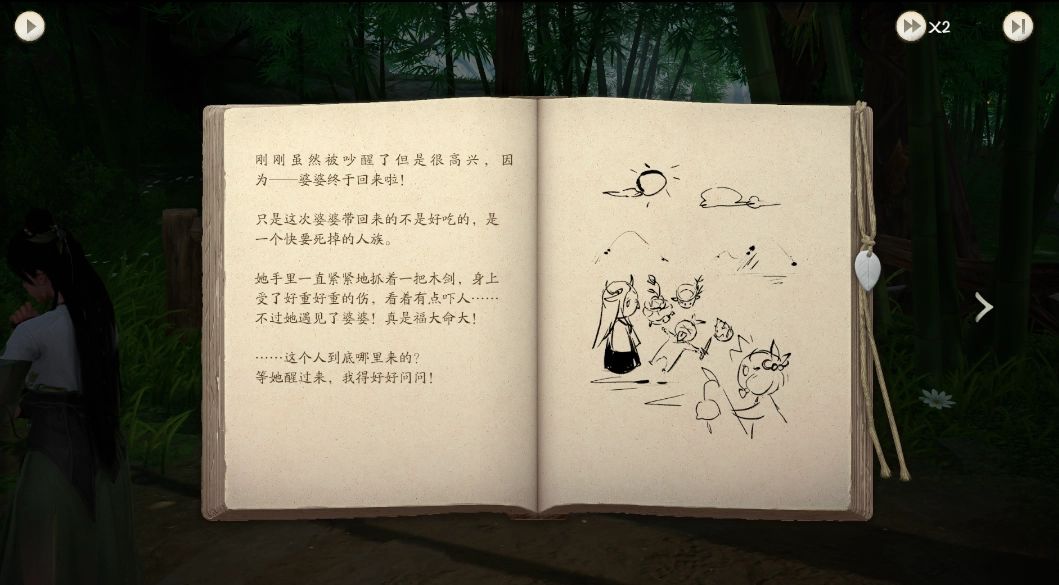 X2
刚刚虽然被吵醒了但是很高兴，因
为——婆婆终于回来啦！
只是这次婆婆带回来的不是好吃的，是
一个快要死掉的人族。
她手里一直紧紧地抓着一把木剑，身上
受了好重好重的伤，看着有点吓人……
不过她遇见了婆婆！真是福大命大！
……这个人到底哪里来的？
等她醒过来，我得好好问问！